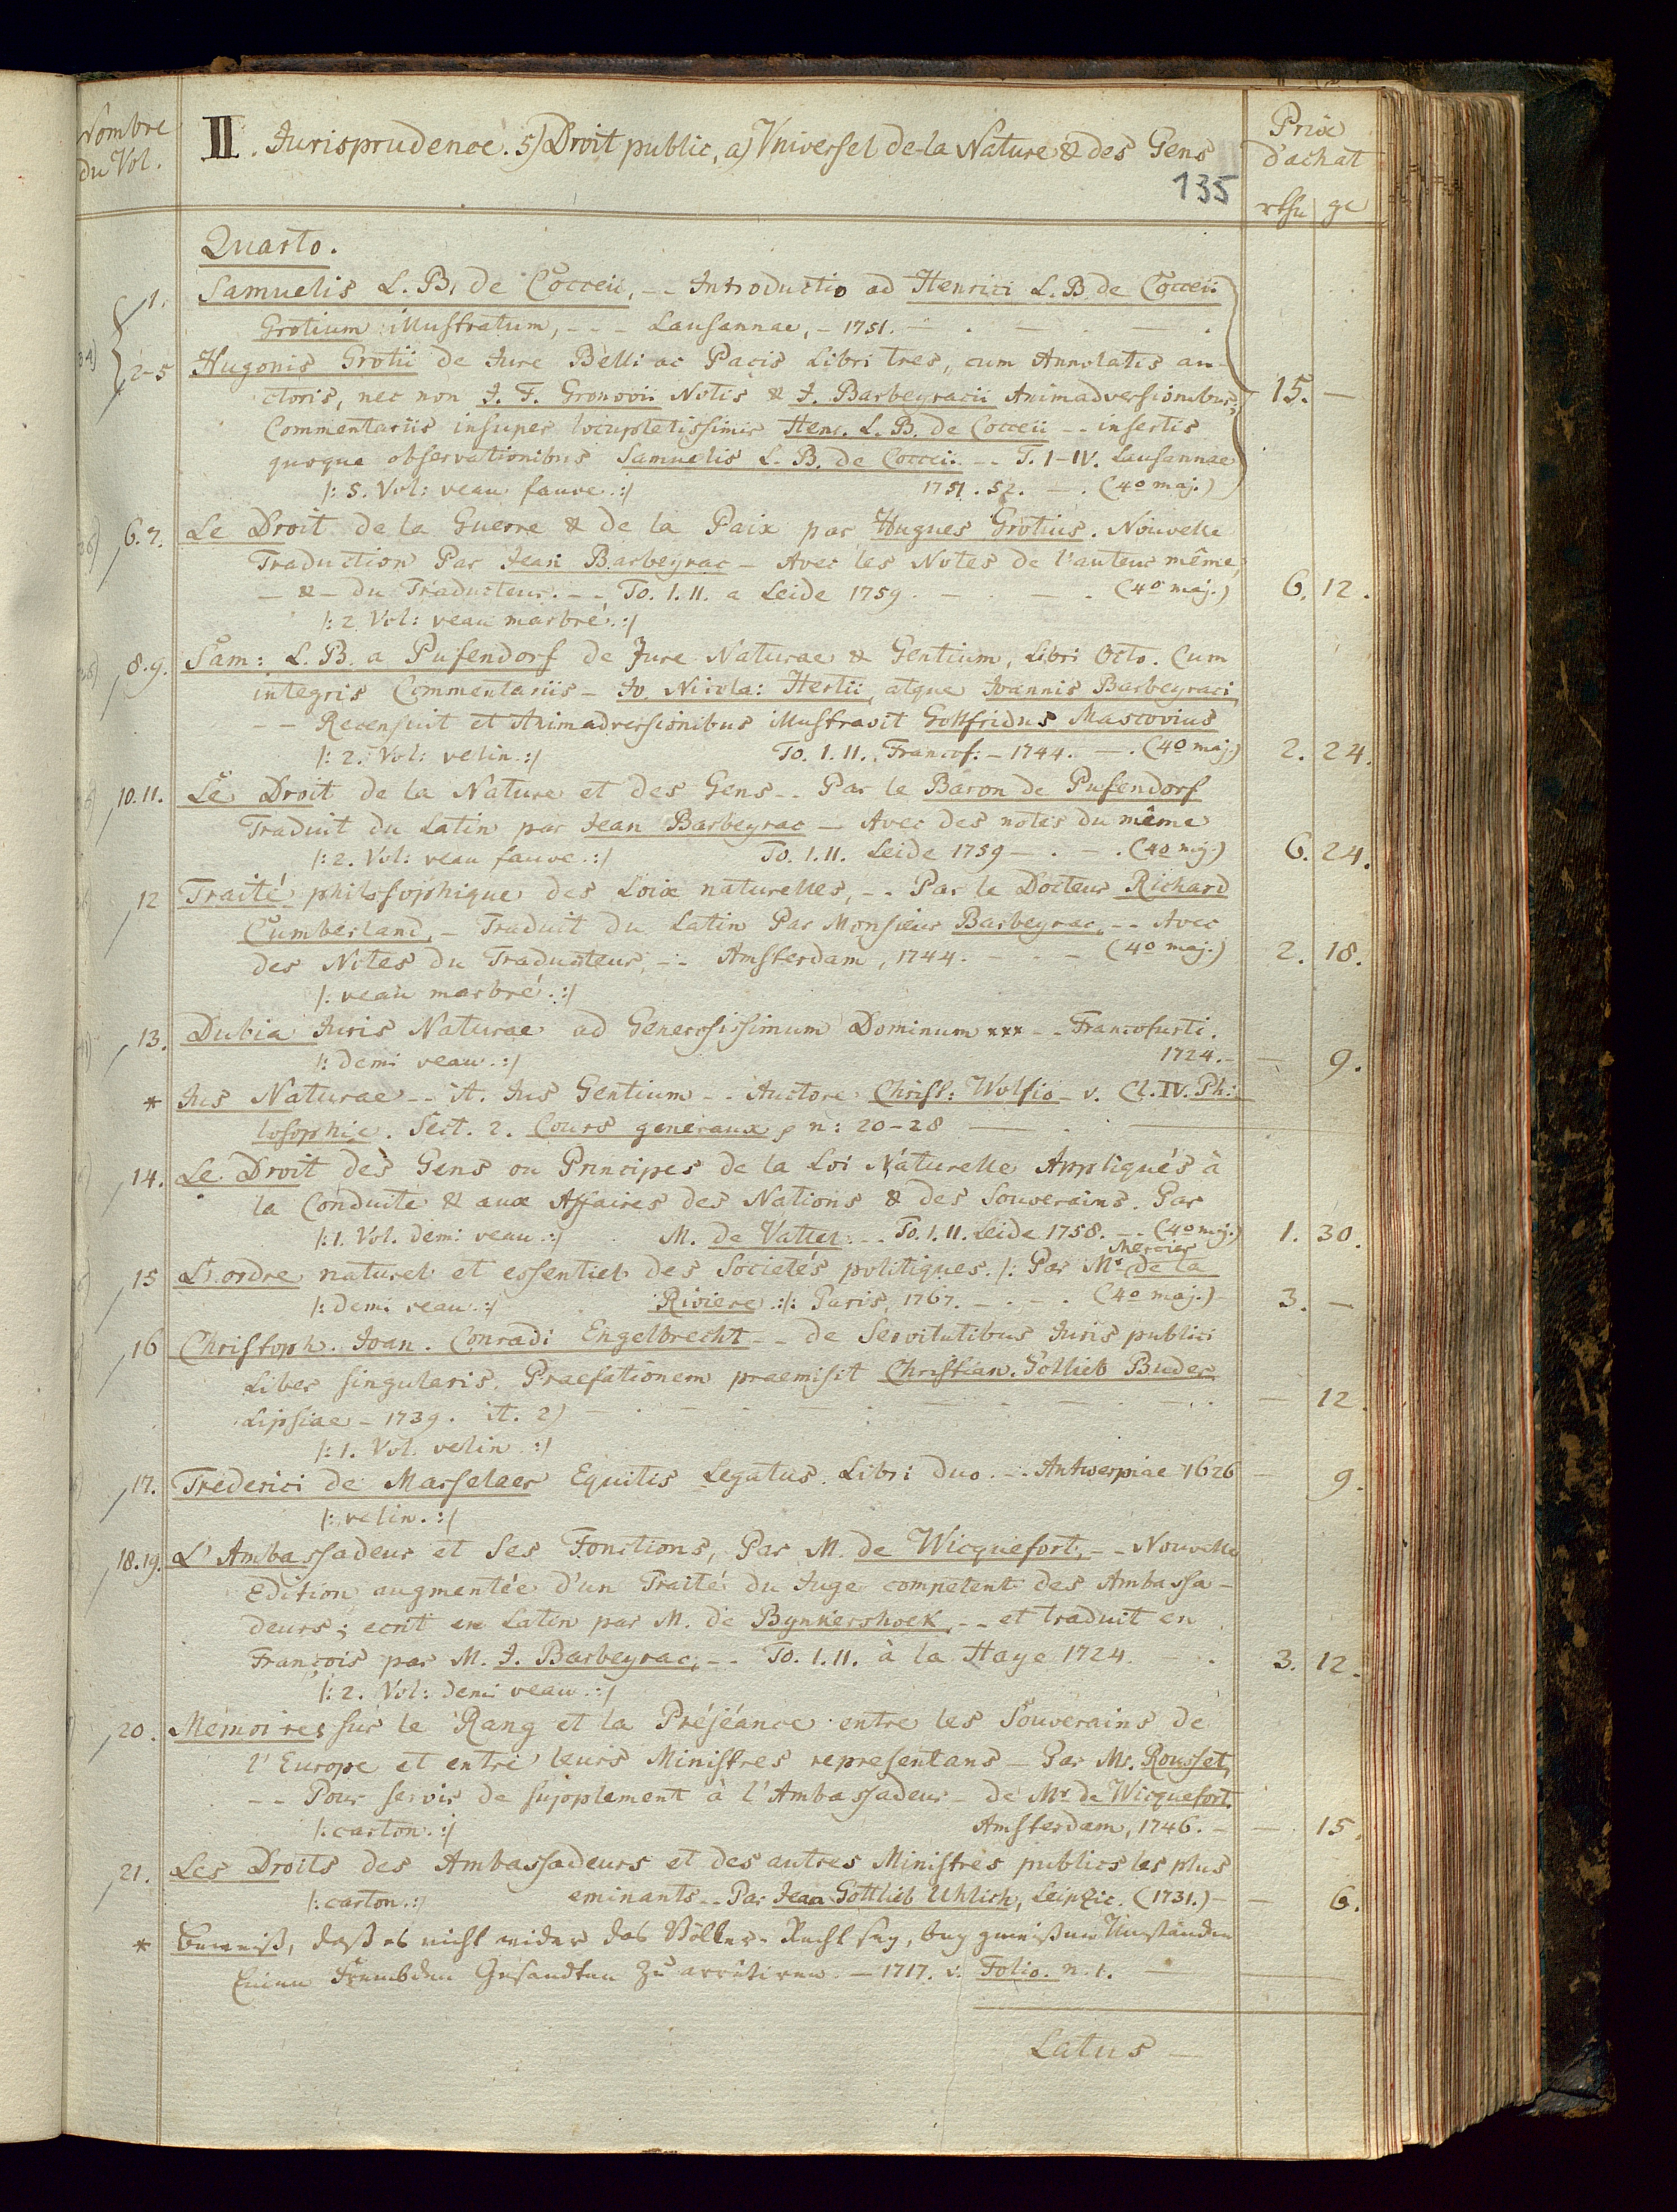 Nombre
du Vol.
II. Jurisprudence. 5) Droit public, a) Vniversel de la Nature & des Gens
Prix
d'achat
135
rthr gr
Quarto.
1. Samuelis L. B. de Cocceii, -- Introductio ad Henrici L. B. de Cocceii
Grotium illustratum, --- Lausannae, - 1751. - . - . - .
2-5 Hugonis Grotii de Jure Belli ac Pacis Libri tres, cum Annotatis au-
ctoris, nec non J. F. Gronovii Notis & J. Barbeyracii Animadversionibus, 15. —
Commentariis insuper locupletissimis Henr. L. B. de Cocceii -- insertis
quoque observationibus Samuelis L. B. de Cocceii -- T. I-IV. Lausannae
/: 5. Vol: veau fauve :/ 1751. 52. — . (4o maj.)
6.7. Le Droit de la Guerre & de la Paix par Hugues Grotius. Nouvelle
Traduction Par Jean Barbeyrac - Avec les Notes de l'auteur même,
- & - du Traducteur. -- To. I. II. a Leide 1759. - . - . (4o maj.) 6. 12.
/: 2 Vol: veau marbré :/
8.9. Sam: L. B. a Pufendorf de Jure Naturae & Gentium, Libri Octo. Cum
integris Commentariis - Jo. Nicola: Hertii, atque Joannis Barbeyraci
-- Recensuit et Animadversionibus illustravit Gottfridus Mascovius
/: 2. Vol: velin :/ To. I. II. Francof: - 1744. — . (4o maj.) 2. 24.
10.11. Le Droit de la Nature et des Gens -- Par le Baron de Pufendorf
Traduit du Latin par Jean Barbeyrac — Avec des notes du même
/: 2. Vol: veau fauve :/ To. I. II. Leide 1759 — . — . (4o mj.) 6. 24.
12 Traité philosophique des Loix naturelles, -- Par le Docteur Richard
Cumberland, - Traduit du Latin Par Monsieur Barbeyrac, -- Avec
des Notes du Traducteur, -- Amsterdam, 1744. - - - (4o maj.) 2. 18.
/: veau marbré :/
13. Dubia Juris Naturae ad Generosissimum Dominum xxx -- Francofurti.
/: demi veau :/ 1724. - — 9.
* Jus Naturae -- it. Jus Gentium -- Auctore Christ: Wolfio - v. Cl. IV. Phi-
losophie. Sect. 2. Cours generaux, n: 20-28 — .
14. Le Droit des Gens ou Principes de la Loi Naturelle Appliqués à
la Conduite & aux Affaires des Nations & des Souverains. Par
/: 1. Vol. demi veau :/ M. de Vattel -- To. I. II. Leide 1758. -- (4o mj.) 1. 30.
Mercier
15 L'ordre naturel et essentiel des Societés politiques. /: Par Mr. de la
/: demi veau :/ Riviere :/: Paris, 1767. - . - . (4o maj.) - 3. —
16 Christoph. Joan. Conradi Engelbrecht -- de Servitutibus Juris publici
Liber singularis. Praefationem praemisit Christian. Gottlieb Buder
Lipsiae - 1739. it. 2) — . — . — . — . — 12.
/: 1. Vol. velin :/
17. Frederici de Marselaer Equitis Legatus. Libri duo. -- Antwerpiae 1626 — 9.
/: velin. :/
18.19. L'Ambassadeur et Ses Fonctions, Par M. de Wicquefort, -- Nouvelle
Edition augmentée d'un Traité du Juge competent des Ambassa-
deurs; ecrit en Latin par M. de Bynkershoek, -- et traduit en
François par M. J. Barbeyrac, -- To. I. II. à la Haye 1724. . . 3. 12.
/: 2. Vol: demi veau :/
20. Memoires sur le Rang et la Préséance entre les Souverains de
l'Europe et entre leurs Ministres representans — Par Mr. Rousset,
-- Pour servir de supplement à l'Ambassadeur - de Mr de Wicquefort
/: carton :/ Amsterdam, 1746. - — 15.
21. Les Droits des Ambassadeurs et des autres Ministres publics les plus
/: carton :/ eminants -- Par Jean Gottlieb Uhlich, Leipzic. (1731.) - — 6.
* Beweiß, daß es nicht wider das Völker-Recht sey, bey gewißen Umständen
Einen Frembden Gesandten zu arretiren. — 1717. v. Folio. n. 1. —
Latus —